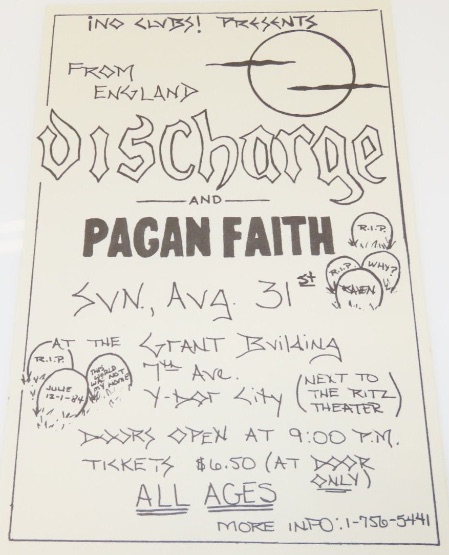 ¡NO CLUBS! PRESENTS
FROM
ENGLAND
discharge
AND
PAGAN FAITH
R.I.P.
R.I.P. WHY?
RAVEN
SUN., AUG. 31st
AT THE GRANT Building
R.I.P.
JULIE
12-1-84
THIS
WORLD
WAS NOT
MY HOME
7th Ave.
Y-bor City (NEXT TO
THE RITZ
THEATER)
DOORS OPEN AT 9:00 P.M.
TICKETS $6.50 (AT DOOR
ONLY)
ALL AGES
MORE INFO: 1-756-5441